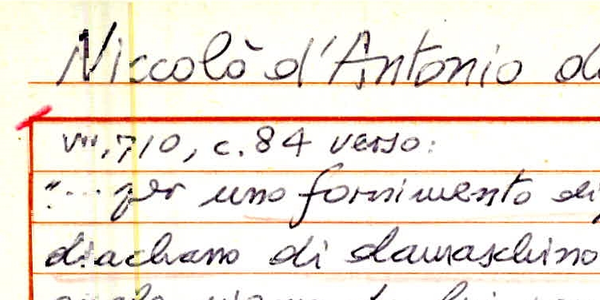 Niccolò d'Antonio d
VIII, 710, c. 84 verso:
"... per uno fornimento di
diachano di damaschino